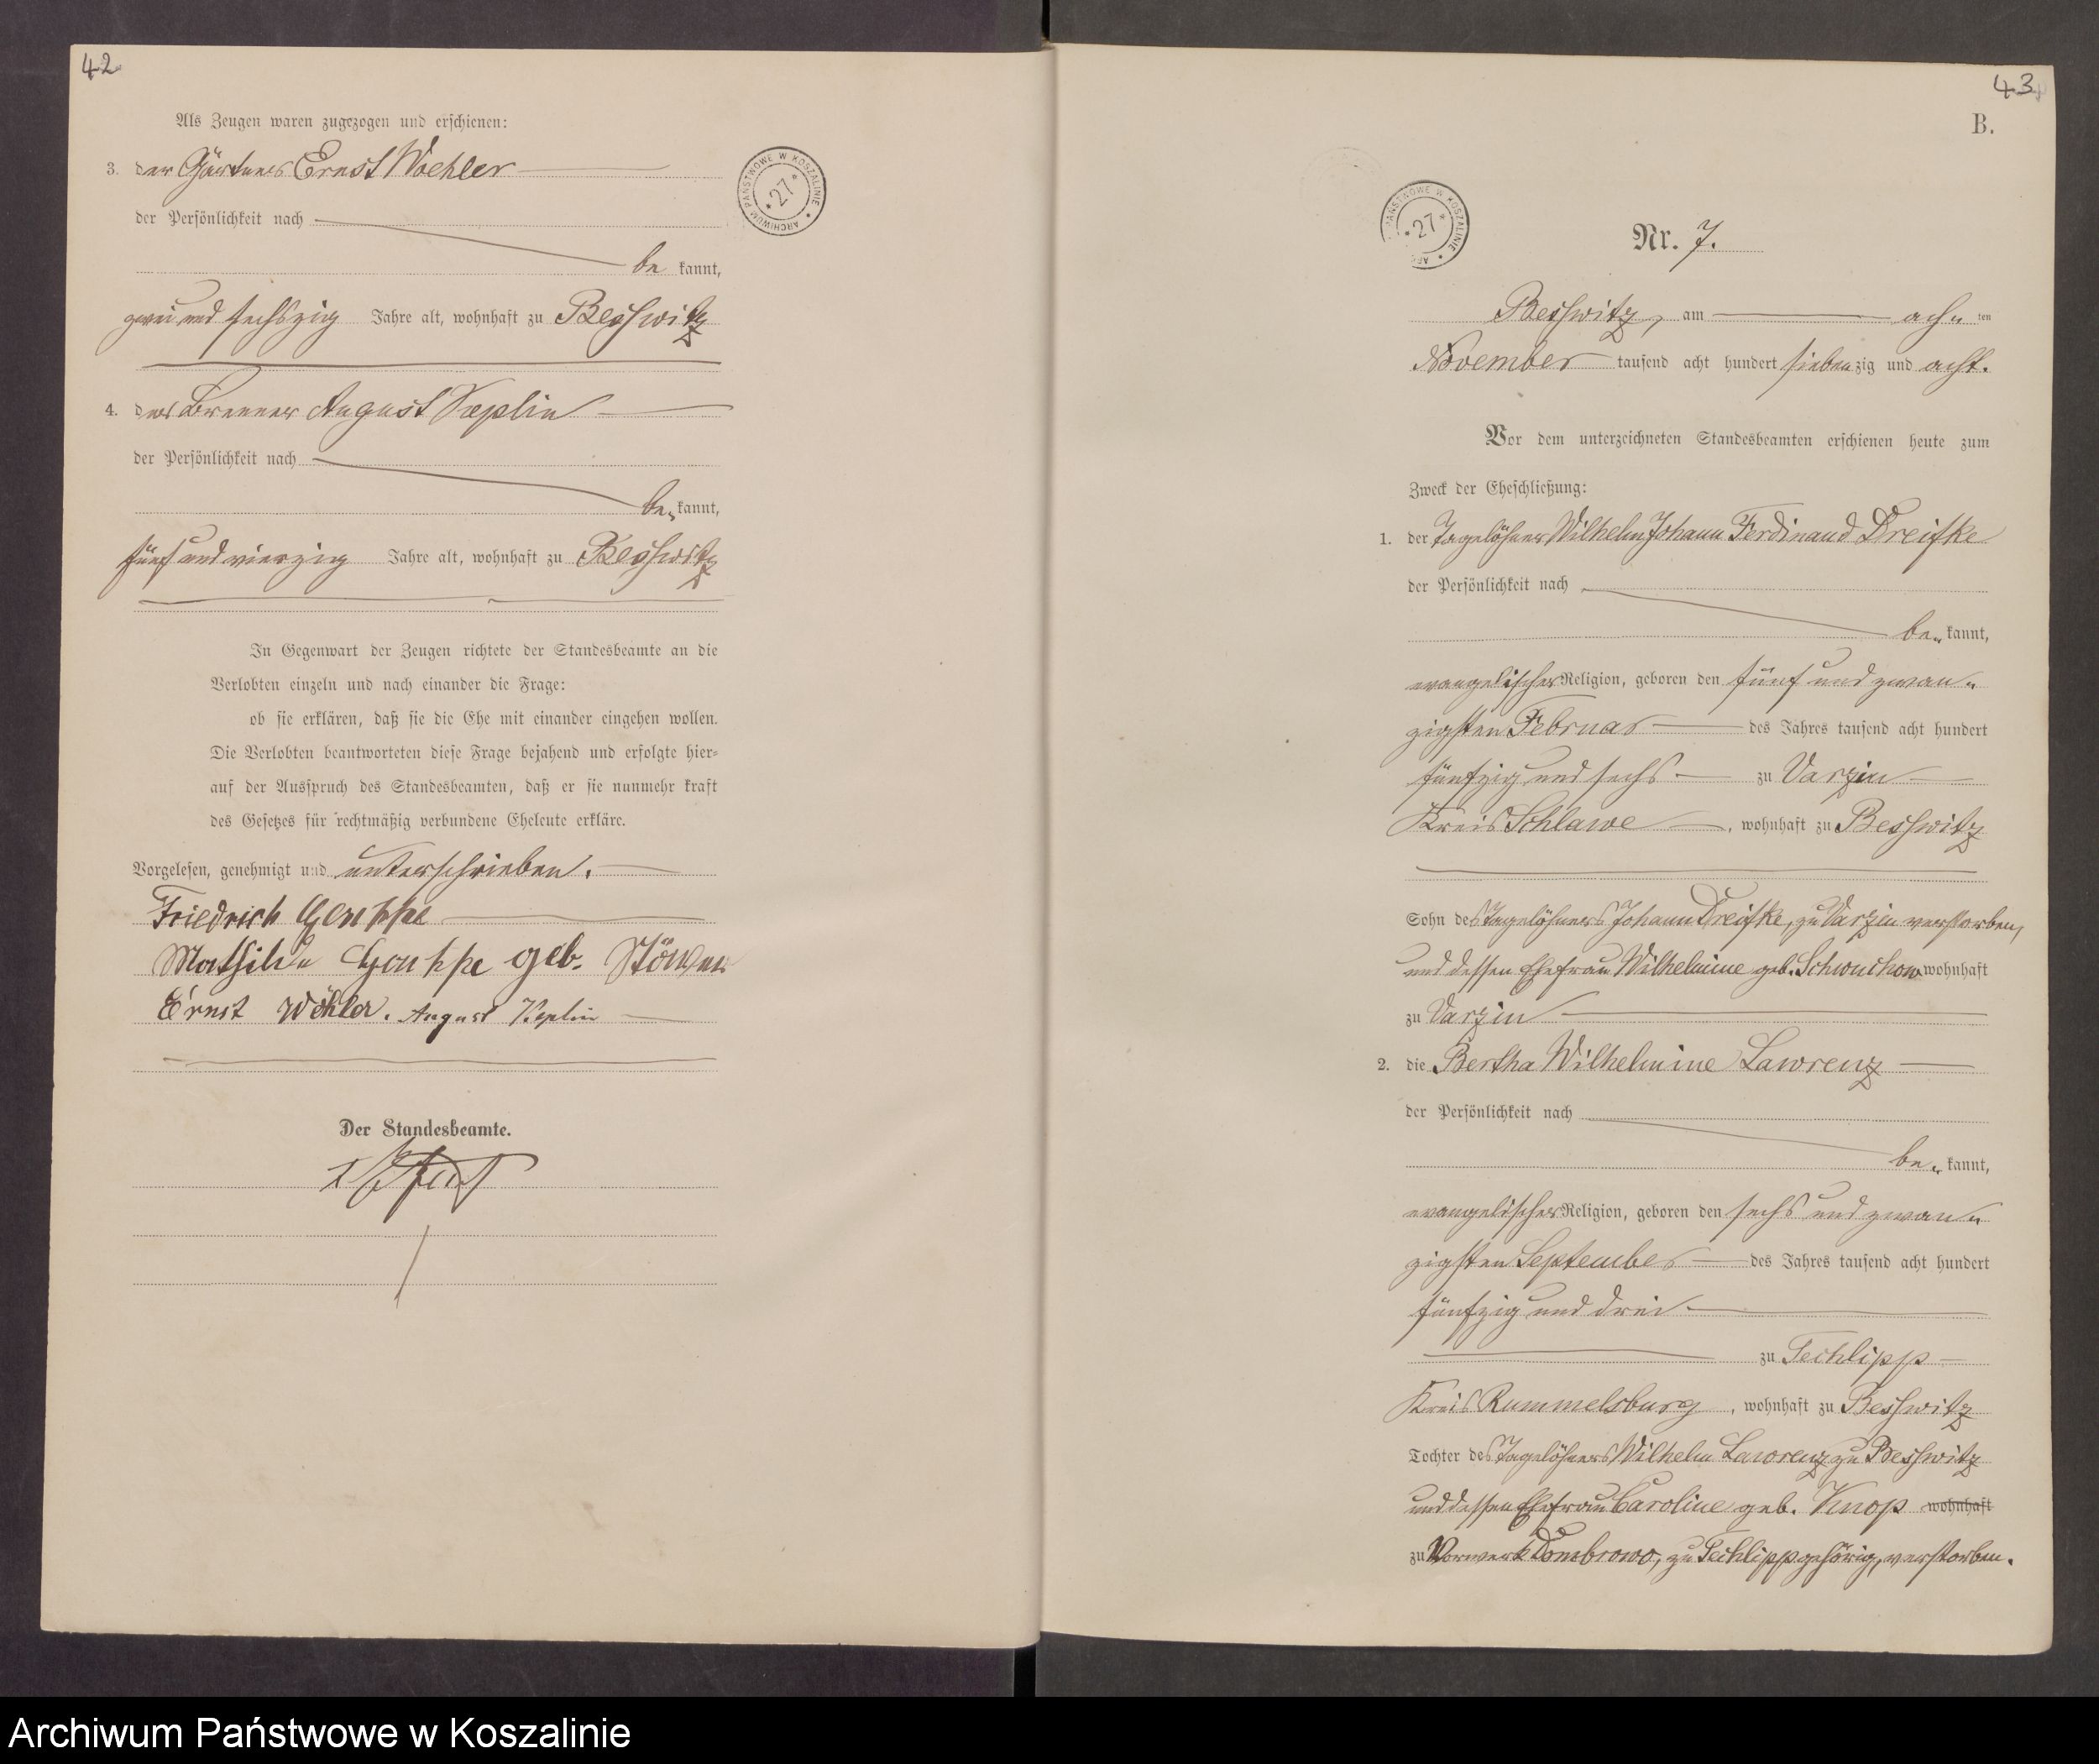 42
Als Zeugen waren zugezogen und erschienen:
3. der Gärtner Ernst Woehler
der Persönlichkeit nach
be kannt,
zwei und sechszig Jahre alt, wohnhaft zu Besswitz
4. der Brenner August Keplin
der Persönlichkeit nach
be„ kannt,
fünf und vierzig Jahre alt, wohnhaft zu Besswitz
In Gegenwart der Zeugen richtete der Standesbeamte an die
Verlobten einzeln und nach einander die Frage:
ob sie erklären, daß sie die Ehe mit einander eingehen wollen.
Die Verlobten beantworteten diese Frage bejahend und erfolgte hier-
auf der Ausspruch des Standesbeamten, daß er sie nunmehr kraft
des Gesetzes für rechtmäßig verbundene Eheleute erkläre.
Vorgelesen, genehmigt und unterschrieben.
Friedrich
Mathilde geb. Stöwer
Ernst Wöhler. August Keplin
Der Standesbeamte.
ARCHIWUM PAŃSTWOWE W KOSZALINIE
* 27 *
43
B.
PAŃSTWOWE W KOSZALINIE
* 27 *
Nr. 7.
Besswitz, am ach„ ten
November tausend acht hundert siebenzig und acht.
Vor dem unterzeichneten Standesbeamten erschienen heute zum
Zweck der Eheschließung:
1. der Tagelöhner Wilhelm Johann Ferdinand Dreifke
der Persönlichkeit nach
be„ kannt,
evangelischer Religion, geboren den fünf und zwan„
zigsten Februar des Jahres tausend acht hundert
fünfzig und sechs zu Varzin
Kreis Schlawe, wohnhaft zu Besswitz
Sohn des Tagelöhners Johann Dreifke, zu Varzin verstorben,
und dessen Ehefrau Wilhelmine geb. Schwuchow wohnhaft
zu Varzin
2. die Bertha Wilhelmine Lawrenz
der Persönlichkeit nach
be„ kannt,
evangelischer Religion, geboren den sechs und zwan„
zigsten September des Jahres tausend acht hundert
fünfzig und drei
zu Techlipp
Kreis Rummelsburg, wohnhaft zu Besswitz
Tochter des Tagelöhners Wilhelm Lawrenz zu Besswitz
und dessen Ehefrau Caroline geb. Knop wohnhaft
zu Vorwerk Dombrowo, zu Techlipp gehörig, verstorben.
Archiwum Państwowe w Koszalinie